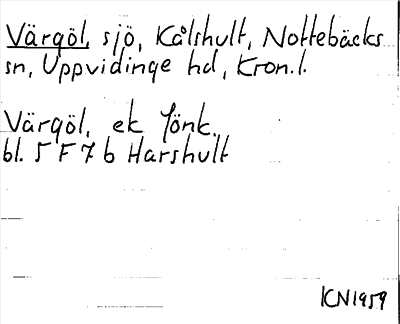 Värgöl, sjö, Kålshult, Nottebäcks
sn, Uppvidinge hd, Kron.l.
Värgöl, ek Jönk.
bl. 5 F 7 b Harshult
KN1959